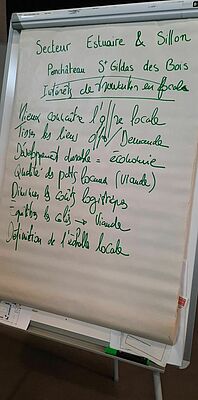 Secteur Estuaire & Sillon
Pontchâteau St Gildas des Bois
Intérêts de
Mieux connaître l'offre locale
Tisser les liens offre/Demande
Développement durable = économie
Qualité des petits locaux (Viande)
Diminuer les coûts logistiques
Equilibre → Viande
Définition de l'échelle locale